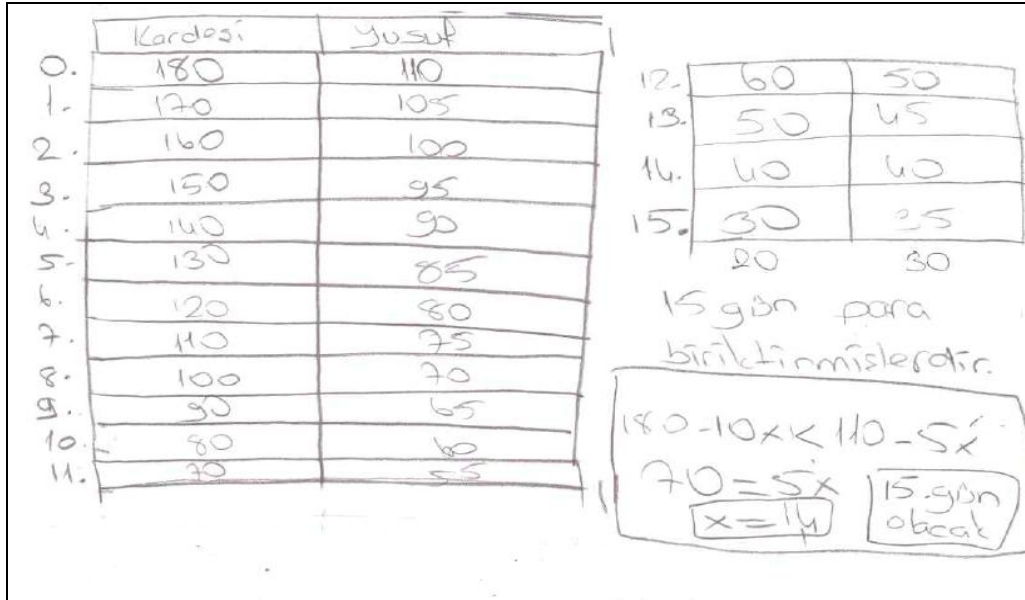 Kardeşi Yusuf
0. 180 110
1. 170 105
2. 160 100
3. 150 95
4. 140 90
5. 130 85
6. 120 80
7. 110 75
8. 100 70
9. 90 65
10. 80 60
11. 70 55
12. 60 50
13. 50 45
14. 40 40
15. 30 35
20 30
15 gün para
biriktirmişlerdir.
180-10x < 110-5x
70=5x
x=14
15.gün
olacak